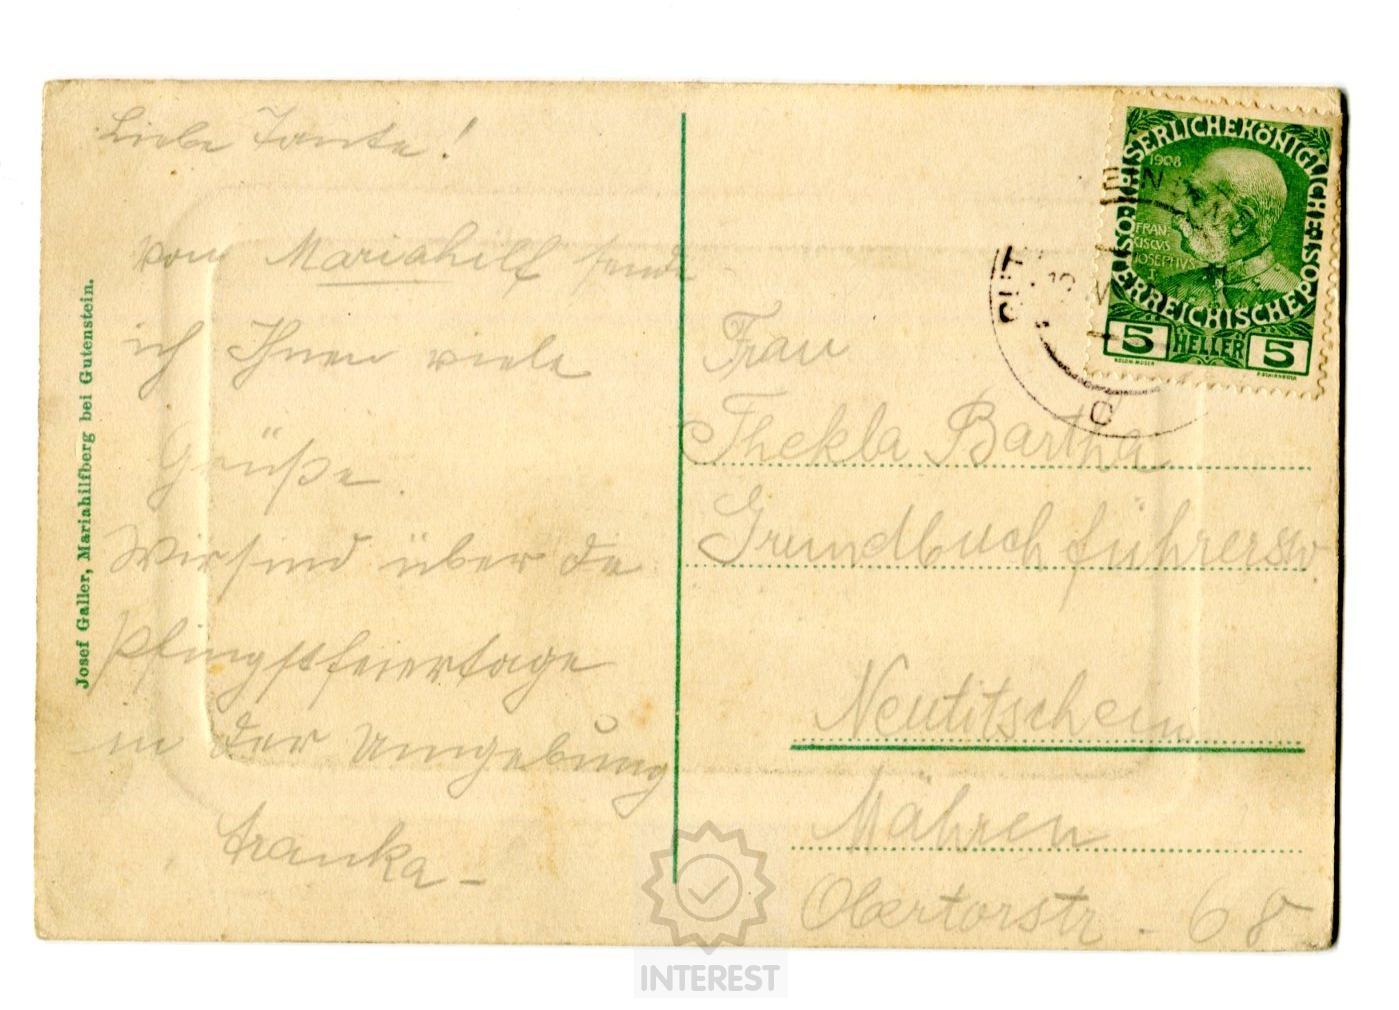 Liebe Tante!
Von Mariahilf sende
ich Ihnen viele
Grüße.
Wir sind über de
Pfingstfeiertage
in der Umgebung
Franka-
Josef Galler, Mariahilfberg bei Gutenstein.
KAISERLICHEKÖNIGLICHE
ÖSTERREICHISCHE
1908
FRAN-
CISCVS
IOSEPHVS
I.
5 HELLER 5
Frau
Thekla Bartha
Grundbuchführersw.
Neutitschein
Mähren
Obertorstr. 68
INTEREST